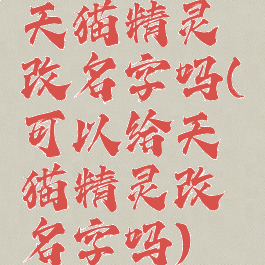 天猫精灵
改名字吗(
可以给天
猫精灵改
名字吗)